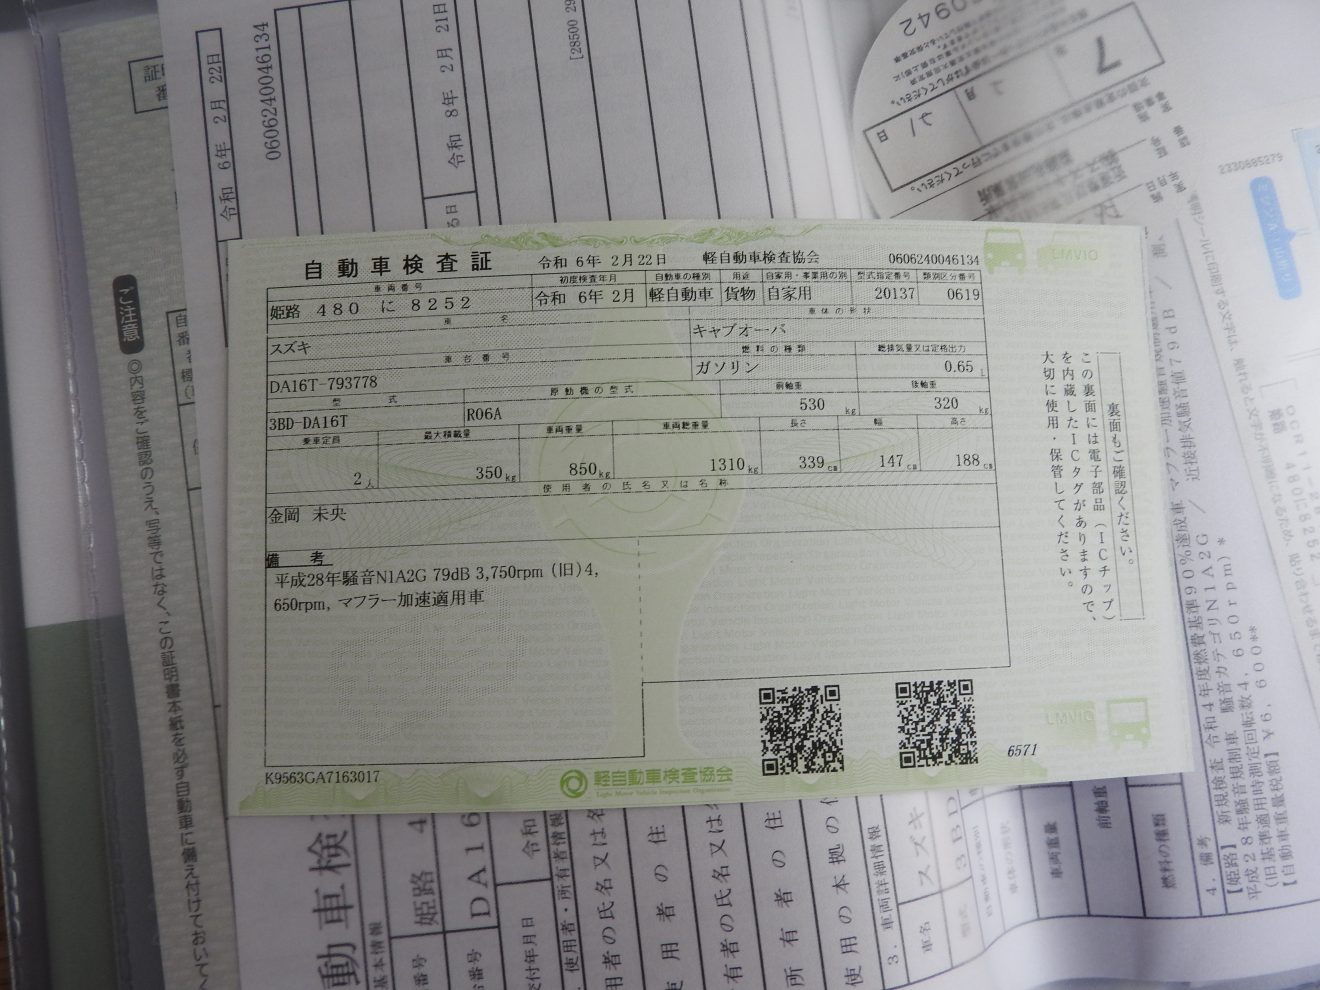 自動車検査証
令和 6年 2月22日
軽自動車検査協会
0606240046134
車両番号
初度検査年月
自動車の種別
用途
自家用・事業用の別
型式指定番号
類別区分番号
姫路 480 に 8252
令和 6年 2月
軽自動車
貨物
自家用
20137
0619
車名
車体の形状
スズキ
キャブオーバ
車台番号
燃料の種類
総排気量又は定格出力
DA16T-793778
ガソリン
0.65 L
型式
原動機の型式
前軸重
後軸重
3BD-DA16T
R06A
530 kg
320 kg
乗車定員
最大積載量
車両重量
車両総重量
長さ
幅
高さ
2人
350kg
850kg
1310kg
339cm
147cm
188cm
使用者の氏名又は名称
金岡 未央
備考
平成28年騒音N1A2G 79dB 3,750rpm (旧)4,
650rpm, マフラー加速適用車
裏面もご確認ください。
この裏面には電子部品(ICチップ)
を内蔵したICタグがありますので、
大切に使用・保管してください。
K9563GA7163017
軽自動車検査協会
Light Motor Vehicle Inspection Organization
6571
LMVIO
LMVIO
令和 6年 2月 22日
0606240046134
令和 8年 2月 21日
[28500 29
ご注意
◎内容をご確認のうえ、写等ではなく、この証明書本紙を必ず自動車に備え付けておいて
動車検
基本情報
番号
姫路 4
DA16
交付年月日
令和
使用者・所有者情報
用者の氏名又は名
使用者の住
有者の氏名又は
所有者の住
使用の本拠の位
3.車両詳細情報
車名
スズキ
3BD
車両重量
前軸重
燃料の種類
4.備考
【姫路】 新規検査 令和4年度燃費基準90%達成車 マフラー加速騒音規制値79dB
平成28年騒音規制車 騒音カテゴリN1A2G / 近接排気騒音
(旧基準適用時測定回転数4,650rpm)*
【自動車重量税額】¥6,600**
2330885279
7
年
2
月
21
日